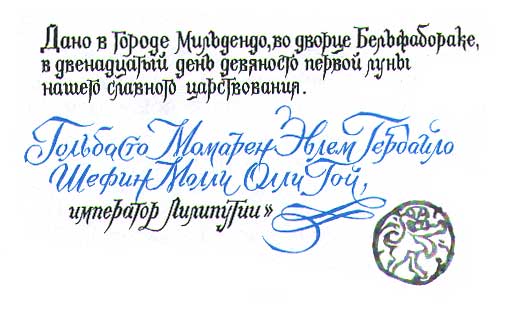 Дано в городе Мильдендо, во дворце Бельфабораке,
в двенадцатый день девяносто первой луны
нашего славного царствования.
Гольбасто Момарен Эвлем Гердайло
Шефин Молли Олли Гой,
император Лилипутии»